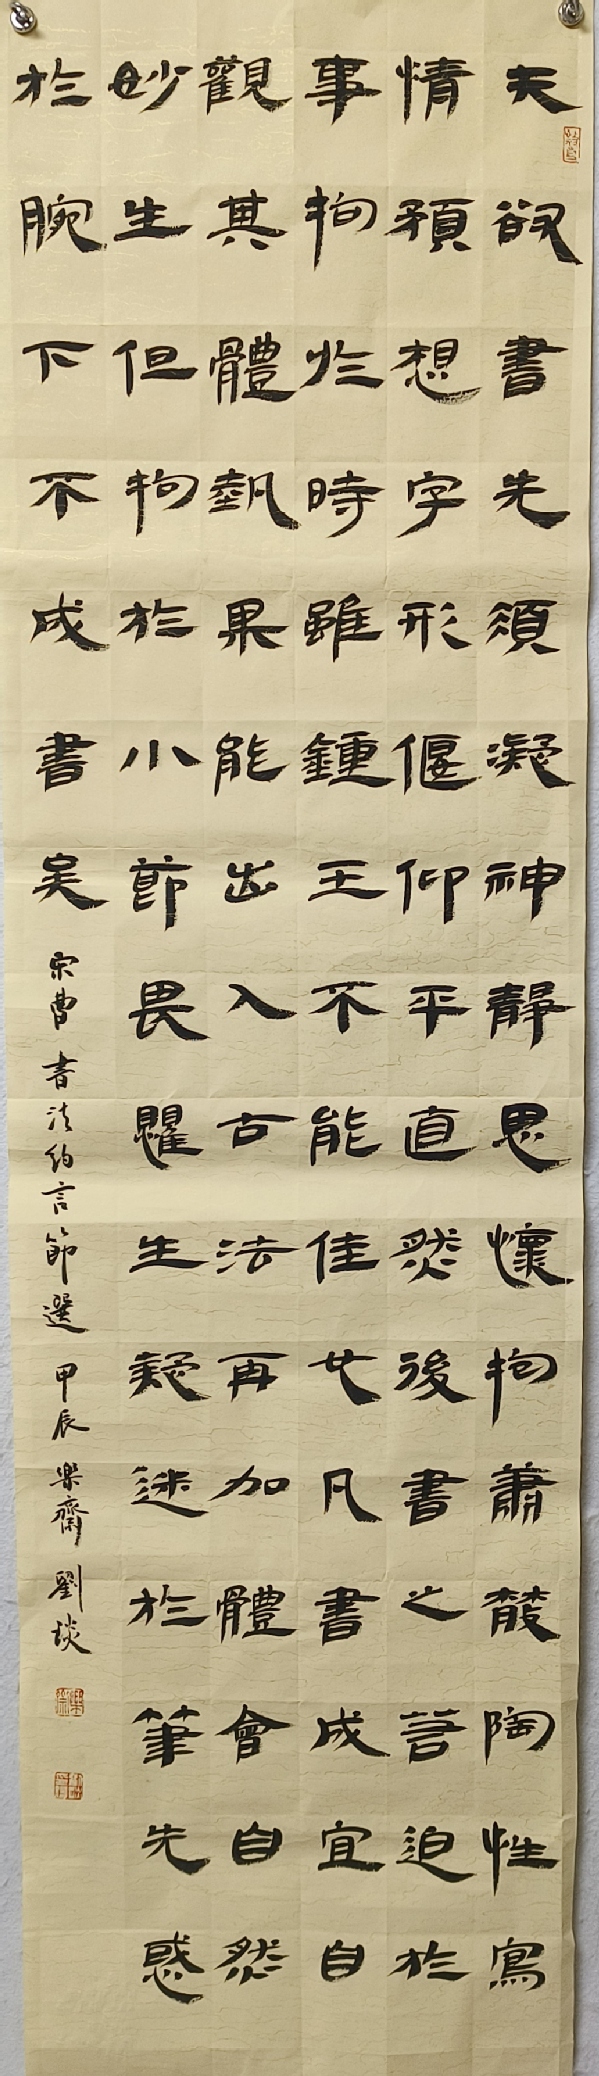 夫欲書先須凝神靜思懷抱蕭散陶性寫
情預想字形偃仰平直然後書之若迫於
事拘於時雖鍾王不能佳也凡書成宜自
觀其體勢果能出入古法再加體會自然
妙生但拘於小節畏懼生疑迷於筆先惑
於腕下不成書矣
宋曹書法約言節選甲辰樂齋劉琰